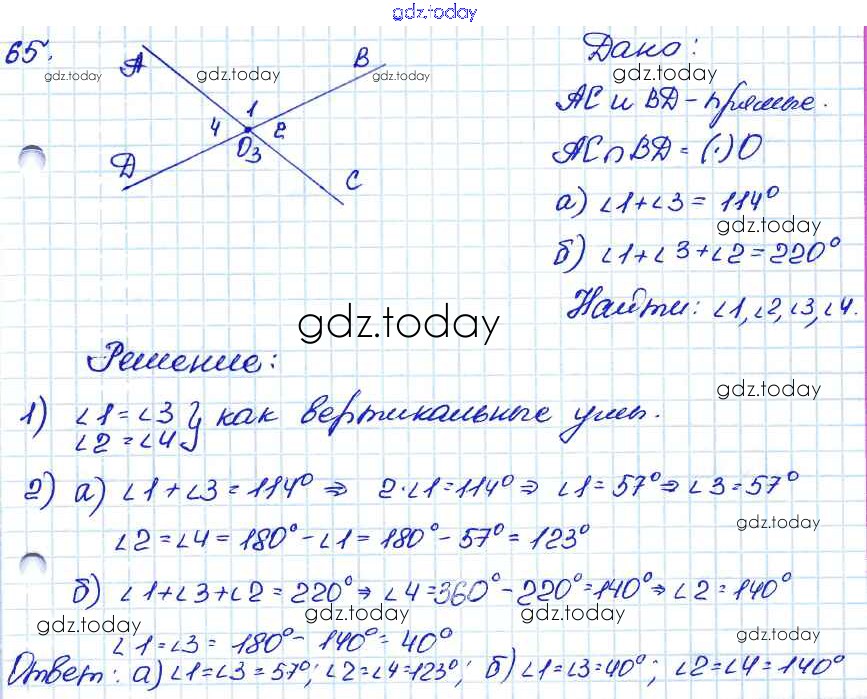 gdz.today
65.
A
B
1
4
2
O
3
D
C
gdz.today
gdz.today
Дано:
gdz.today
AC и BD - прямые.
AC ∩ BD = (·) O
а) ∠1+∠3 = 114°
gdz.today
б) ∠1+∠3+∠2=220°
Найти: ∠1, ∠2, ∠3, ∠4.
gdz.today
Решение:
gdz.today
1) ∠1=∠3
∠2=∠4 } как вертикальные углы.
2) а) ∠1+∠3=114° ⇒ 2·∠1=114° ⇒ ∠1=57° ⇒ ∠3=57°
gdz.today
∠2=∠4=180°-∠1=180°-57°=123°
б) ∠1+∠3+∠2=220° ⇒ ∠4=360°-220°=140° ⇒ ∠2=140°
gdz.today
gdz.today
gdz.today
gdz.today
∠1=∠3= 180°- 140°= 40°
Ответ: а) ∠1=∠3=57°; ∠2=∠4=123°; б) ∠1=∠3=40°; ∠2=∠4=140°